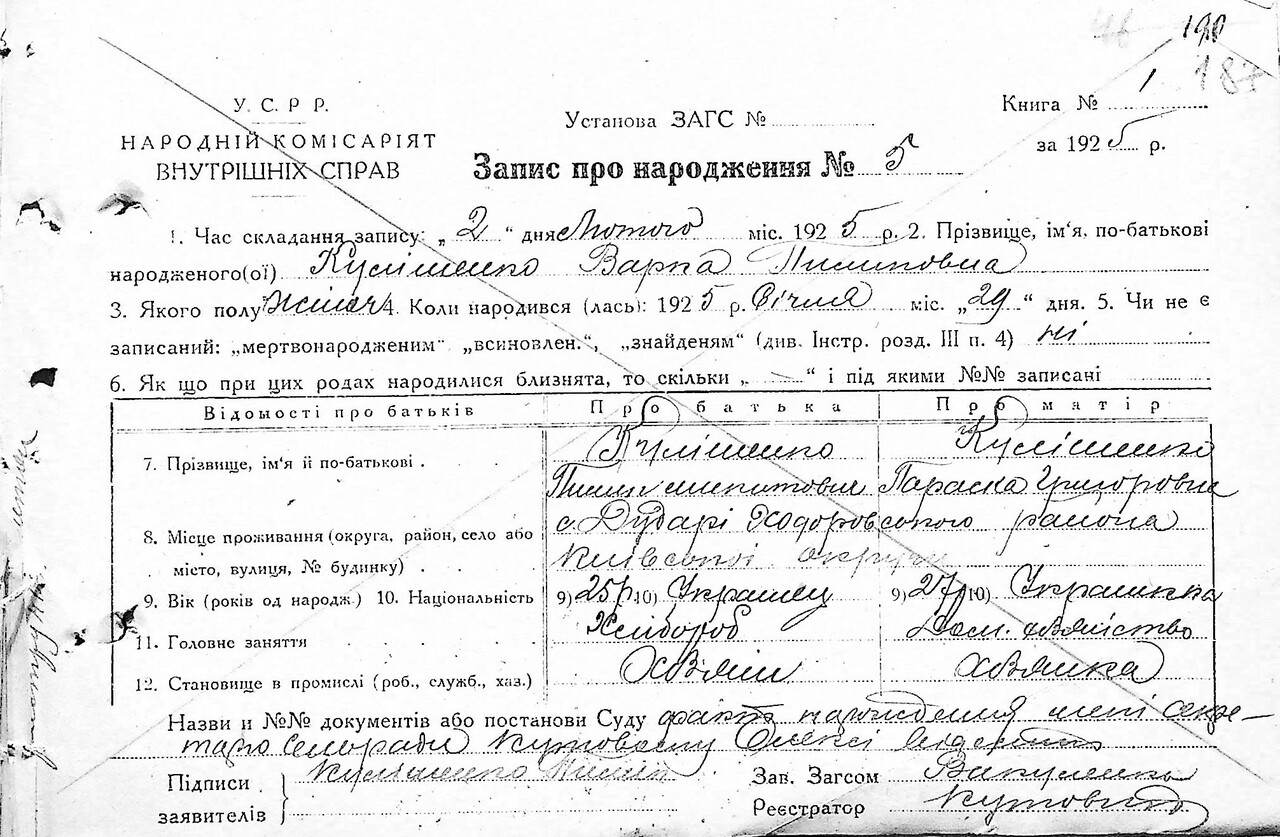 190
187
У. С. Р Р.
НАРОДНІЙ КОМІСАРІЯТ
ВНУТРІШНІХ СПРАВ
Установа ЗАГС №
Книга № 1
за 1925 р.
Запис про народження № 5
1. Час складання запису: „ 2 " дня Лютого міс. 1925 р. 2. Прізвище, ім'я, по-батькові
народженого(ої) Кулішенко Варка Пилиповна
3. Якого полу жіноч 4. Коли народився (лась): 1925 р. Січня міс. „29" дня. 5. Чи не є
записаний: „мертвонародженим" „всиновлен.", „знайденям" (див. Інстр. розд. III п. 4) ні
6. Як що при цих родах народилися близнята, то скільки „ — " і під якими №№ записані
Відомості про батьків Про батька Про матір
7. Прізвище, ім'я й по-батькові . Кулішенко Кулішенко
Пилип Параска Григоровна
8. Місце проживання (округа, район, село або с. Дударі Ходоровського района
місто, вулиця, № будинку) . . Київської округи
9. Вік (років од народж) 10. Національність 9) 25 р. 10) Украінец 9) 27 р. 10) Украинка
11. Головне заняття Хлібороб Дом. хозяйство
12. Становище в промислі (роб., служб., хаз.) Хозяин Хозяйка
Назви и №№ документів або постанови Суду факт народження мені секре-
тарю Сельради Кутовому Олексі
Підписи Кулішенко Пилип Зав. Загсом Вакуленко
заявителів Реєстратор Кутовий